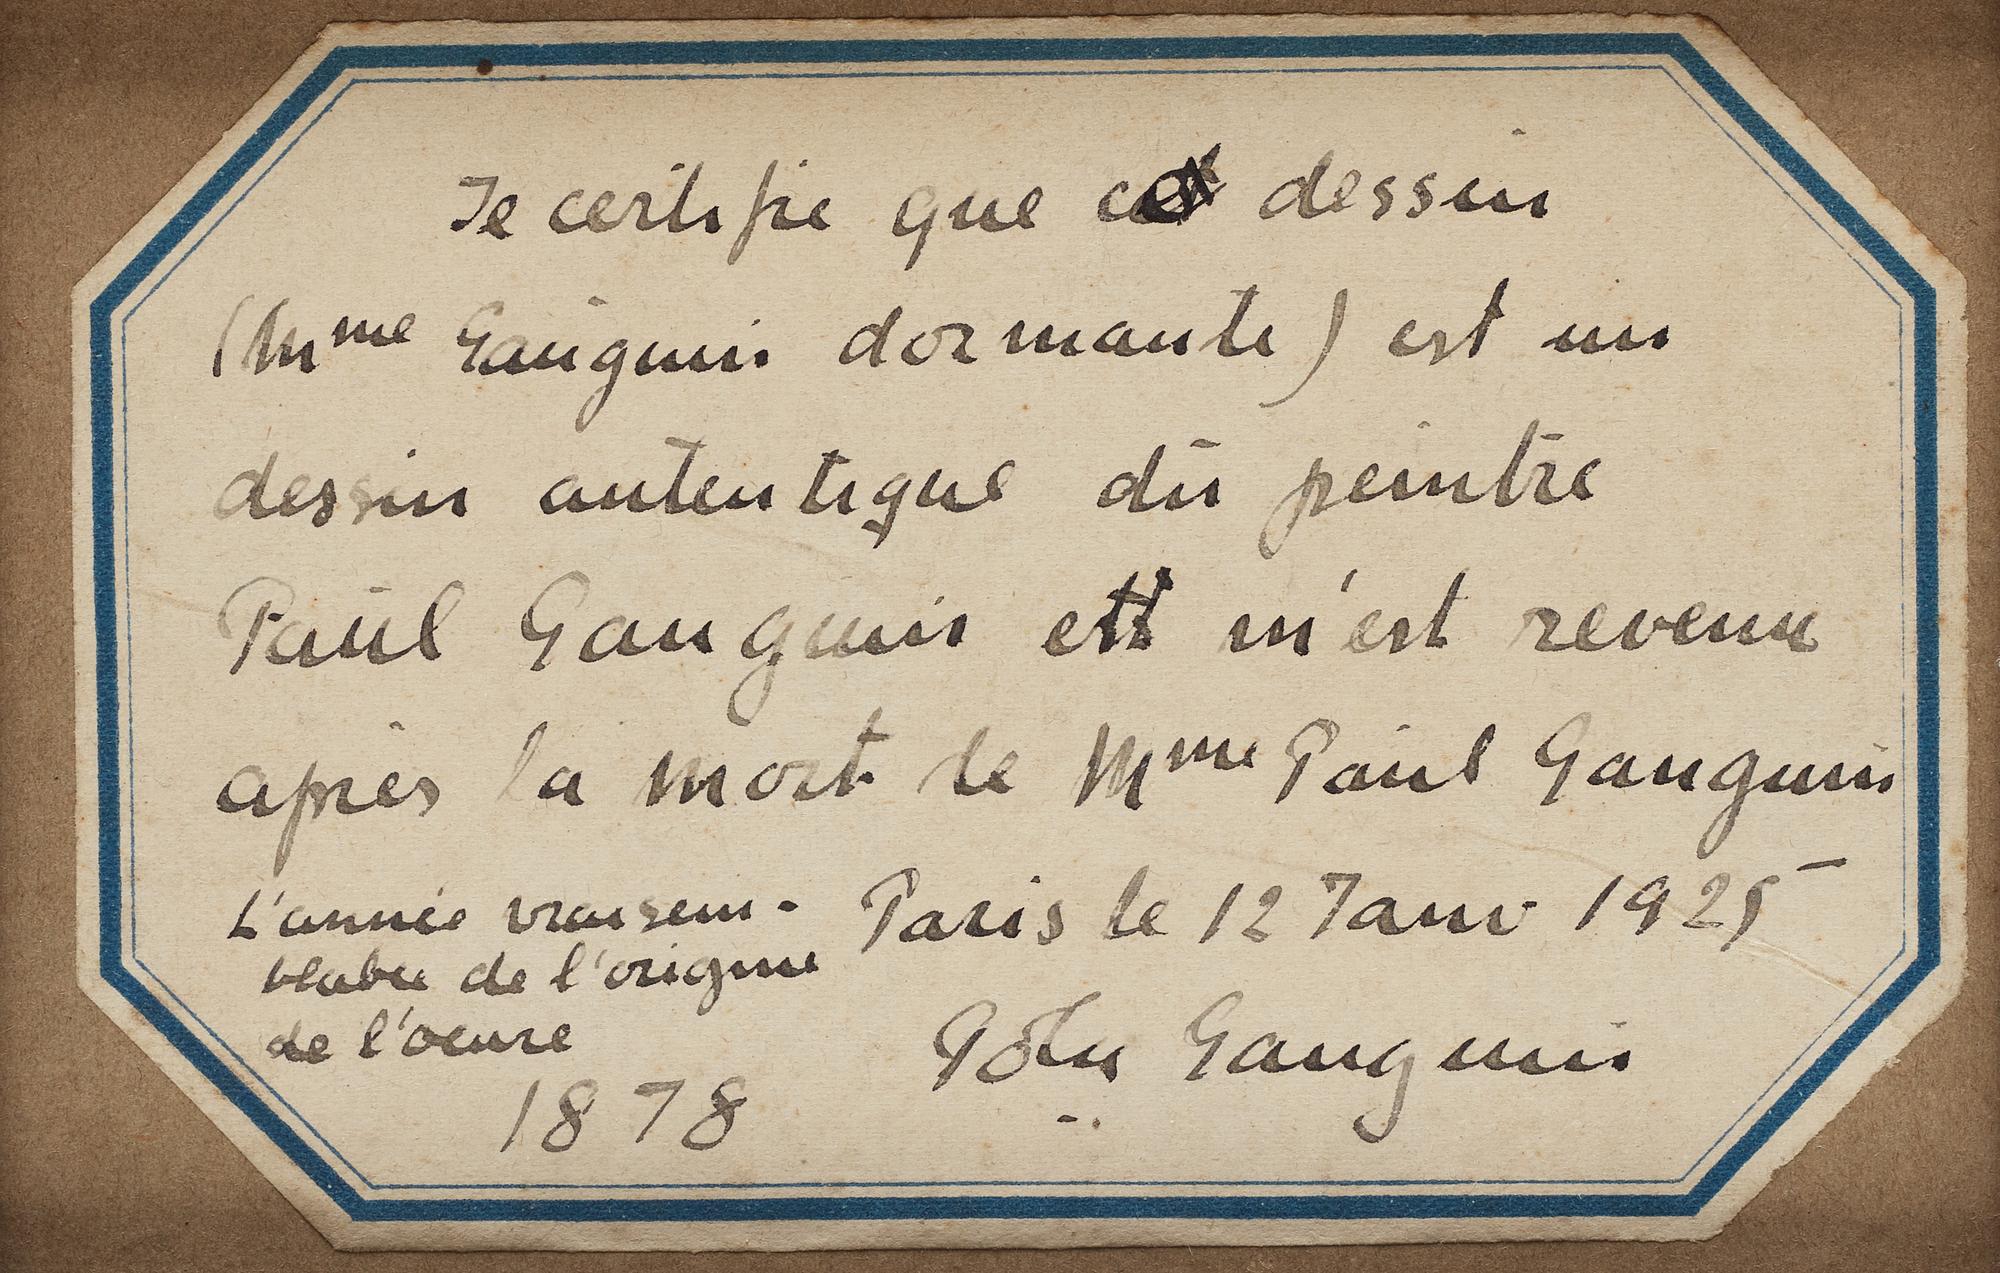 Je certifie que ce dessin
(Mme Gauguin dormante) est un
dessin autentique du peintre
Paul Gauguin et m'est revenu
après la mort de Mme Paul Gauguin
L'année vraisem-
blable de l'origine
de l'oeuvre
1878
Paris le 12 Janv 1925
Pola Gauguin